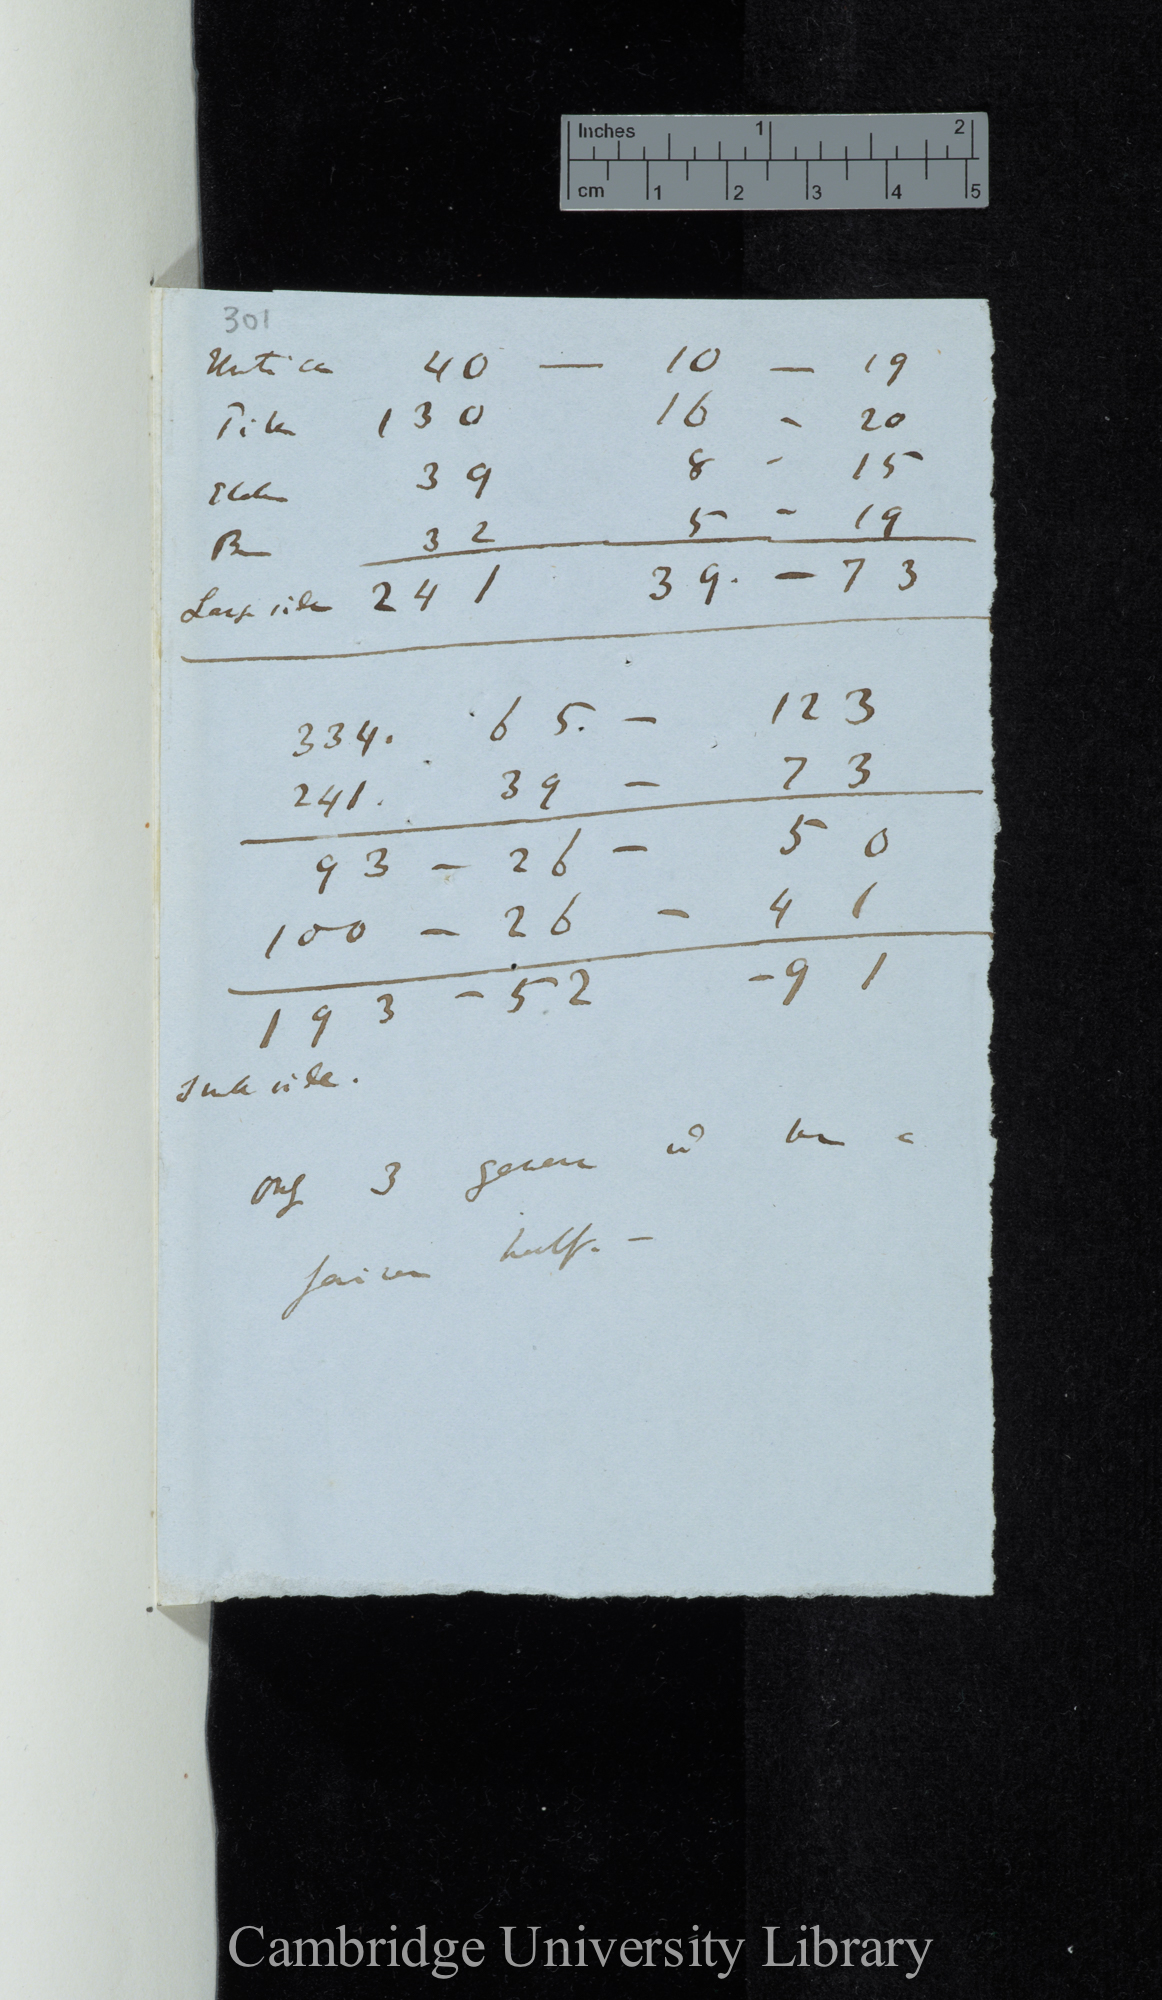 Inches 1 2
cm 1 2 3 4 5
301
40 — 10 — 19
130 16 - 20
39 8 - 15
32 5 - 19
Large side 241 39. - 73
334. 65. - 123
241. 39 - 73
93 - 26 - 50
100 - 26 - 41
193 - 52 - 91
side.
only 3 genera
half. -
Cambridge University Library